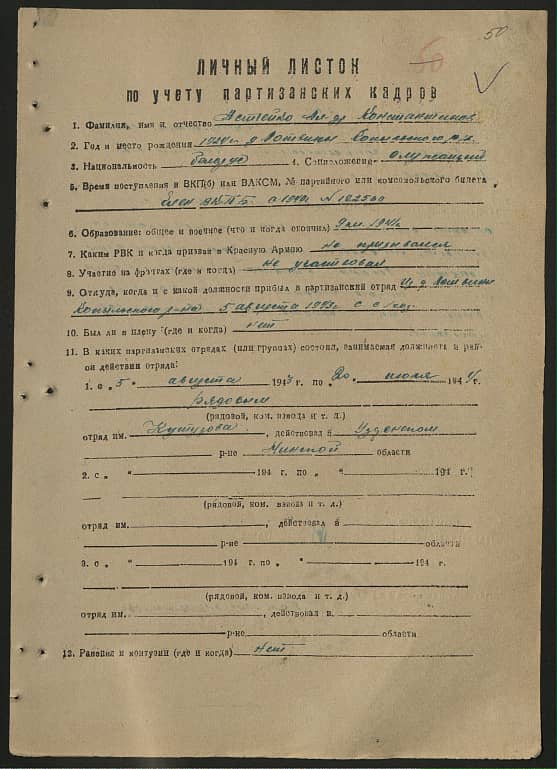 50
ЛИЧНЫЙ ЛИСТОК
по учету партизанских кадров
1. Фамилия, имя и отчество Константинов
2. Год и место рождения 1924 г. д.
3. Национальность белорус 4. Соцположение Служащий
5. Время поступления в ВКП(б) или ВЛКСМ, № партийного или комсомольского билета
член № 182500
6. Образование: общее и военное (что и когда окончил) 1941г
7. Каким РВК и когда призван в Красную Армию не призывался
8. Участие на фронтах (где и когда) не участвовал
9. Откуда, когда и с какой должности прибыл в партизанский отряд Из д.
Копыльского р-на 5 августа 1943г с
10. Был ли в плену (где и когда) нет
11. В каких партизанских отрядах (или группах) состоял, занимаемая должность и рай-
он действия отряда:
1. с „5“ августа 1943 г. по „20“ июля 1944 г.
рядовым
(рядовой, ком. взвода и т. д.)
отряд им. Кутузова, действовал в Узденском
р-не Минской области
2. с „ “ 194 г. по „ “ 194 г.
(рядовой, ком. взвода и т. д.)
отряд им. , действовал в
р-не области
3. с „ “ 194 г. по „ “ 194 г.
(рядовой, ком. взвода и т. д.)
отряд им. , действовал в
р-не области
12. Ранения и контузии (где и когда) нет